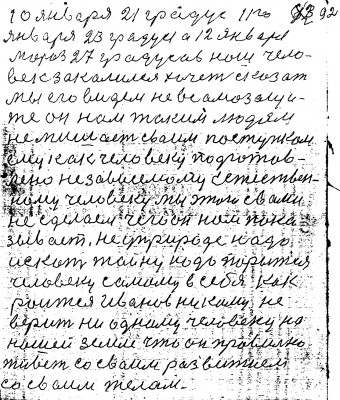 10 января 21 градус 11го 92
января 23 градуса 12 января
мороз 27 градусав нош чело-
век закалился хочет сказат
мы его видем не в самозащи-
те он ном таким людям
не мишает сваим поступком
ему как человеку подготов-
лено независемому естествен-
ному человеку мы этого свами
не сделаем чего он ном пока
зывает. не природе надо
искат тайну надо
человеку самому в себя как
роится Иванов никому не
верит ни одному человеку на
нашей земли что он правилно
живет со сваим развитием
со сваим телам.